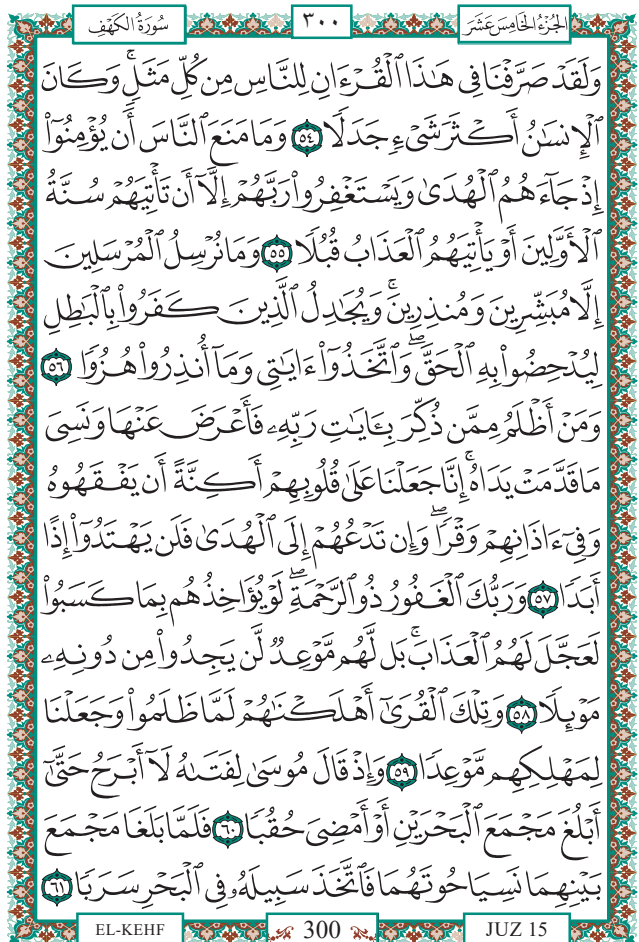 سُورَةُ الكَهْفِ ٣٠٠ الجُزْءُ الخَامِسَ عَشَرَ
وَلَقَدْ صَرَّفْنَا فِى هَـٰذَا ٱلْقُرْءَانِ لِلنَّاسِ مِن كُلِّ مَثَلٍۚ وَكَانَ
ٱلْإِنسَـٰنُ أَكْثَرَ شَىْءٍ جَدَلًا ٥٤ وَمَا مَنَعَ ٱلنَّاسَ أَن يُؤْمِنُوٓا۟
إِذْ جَآءَهُمُ ٱلْهُدَىٰ وَيَسْتَغْفِرُوا۟ رَبَّهُمْ إِلَّآ أَن تَأْتِيَهُمْ سُنَّةُ
ٱلْأَوَّلِينَ أَوْ يَأْتِيَهُمُ ٱلْعَذَابُ قُبُلًا ٥٥ وَمَا نُرْسِلُ ٱلْمُرْسَلِينَ
إِلَّا مُبَشِّرِينَ وَمُنذِرِينَۚ وَيُجَـٰدِلُ ٱلَّذِينَ كَفَرُوا۟ بِٱلْبَـٰطِلِ
لِيُدْحِضُوا۟ بِهِ ٱلْحَقَّۖ وَٱتَّخَذُوٓا۟ ءَايَـٰتِى وَمَآ أُنذِرُوا۟ هُزُوًا ٥٦
وَمَنْ أَظْلَمُ مِمَّن ذُكِّرَ بِـَٔايَـٰتِ رَبِّهِۦ فَأَعْرَضَ عَنْهَا وَنَسِىَ
مَا قَدَّمَتْ يَدَاهُۚ إِنَّا جَعَلْنَا عَلَىٰ قُلُوبِهِمْ أَكِنَّةً أَن يَفْقَهُوهُ
وَفِىٓ ءَاذَانِهِمْ وَقْرًاۖ وَإِن تَدْعُهُمْ إِلَى ٱلْهُدَىٰ فَلَن يَهْتَدُوٓا۟ إِذًا
أَبَدًا ٥٧ وَرَبُّكَ ٱلْغَفُورُ ذُو ٱلرَّحْمَةِۖ لَوْ يُؤَاخِذُهُم بِمَا كَسَبُوا۟
لَعَجَّلَ لَهُمُ ٱلْعَذَابَۚ بَل لَّهُم مَّوْعِدٌ لَّن يَجِدُوا۟ مِن دُونِهِۦ
مَوْئِلًا ٥٨ وَتِلْكَ ٱلْقُرَىٰٓ أَهْلَكْنَـٰهُمْ لَمَّا ظَلَمُوا۟ وَجَعَلْنَا
لِمَهْلِكِهِم مَّوْعِدًا ٥٩ وَإِذْ قَالَ مُوسَىٰ لِفَتَىٰهُ لَآ أَبْرَحُ حَتَّىٰٓ
أَبْلُغَ مَجْمَعَ ٱلْبَحْرَيْنِ أَوْ أَمْضِىَ حُقُبًا ٦٠ فَلَمَّا بَلَغَا مَجْمَعَ
بَيْنِهِمَا نَسِيَا حُوتَهُمَا فَٱتَّخَذَ سَبِيلَهُۥ فِى ٱلْبَحْرِ سَرَبًا ٦١
EL-KEHF 300 JUZ 15